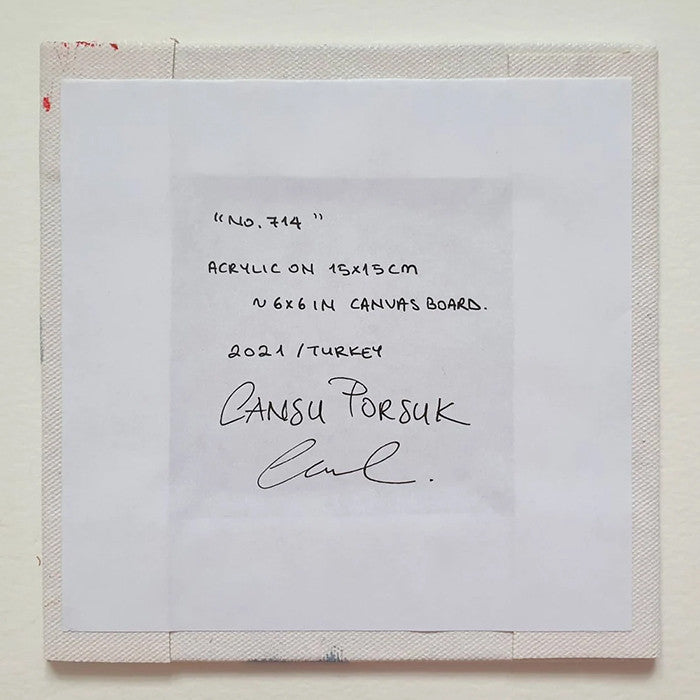 "NO. 714"
ACRYLIC ON 15X15CM
~ 6X6 IN CANVAS BOARD.
2021 / TURKEY
CANSU PORSUK